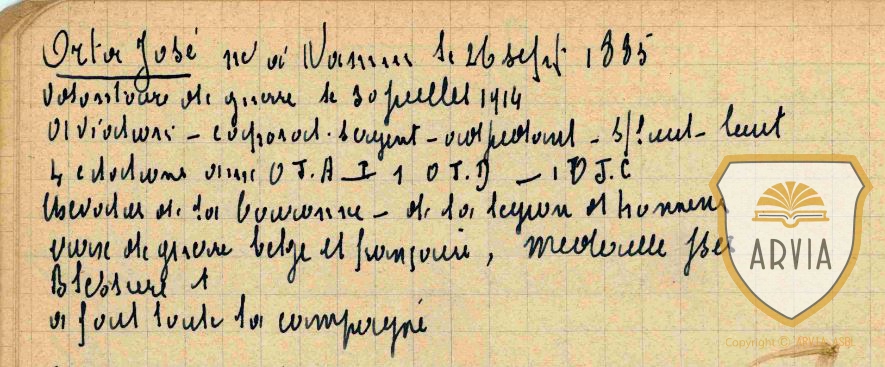 Orta José né à Namur le 26 sept 1885
Volontaire de guerre le 30 juillet 1914
Aviateur - caporal. sergent - adjudant - s/lieut - lieut
4 citations O.J.A 1 O.J.D - 1 O J.C
Chevalier de la Couronne - de la legion d honneur
croix de guerre belge et française, medaille
Blessure 1
a fait toute la campagne
ARVIA
Copyright © ARVIA ASBL